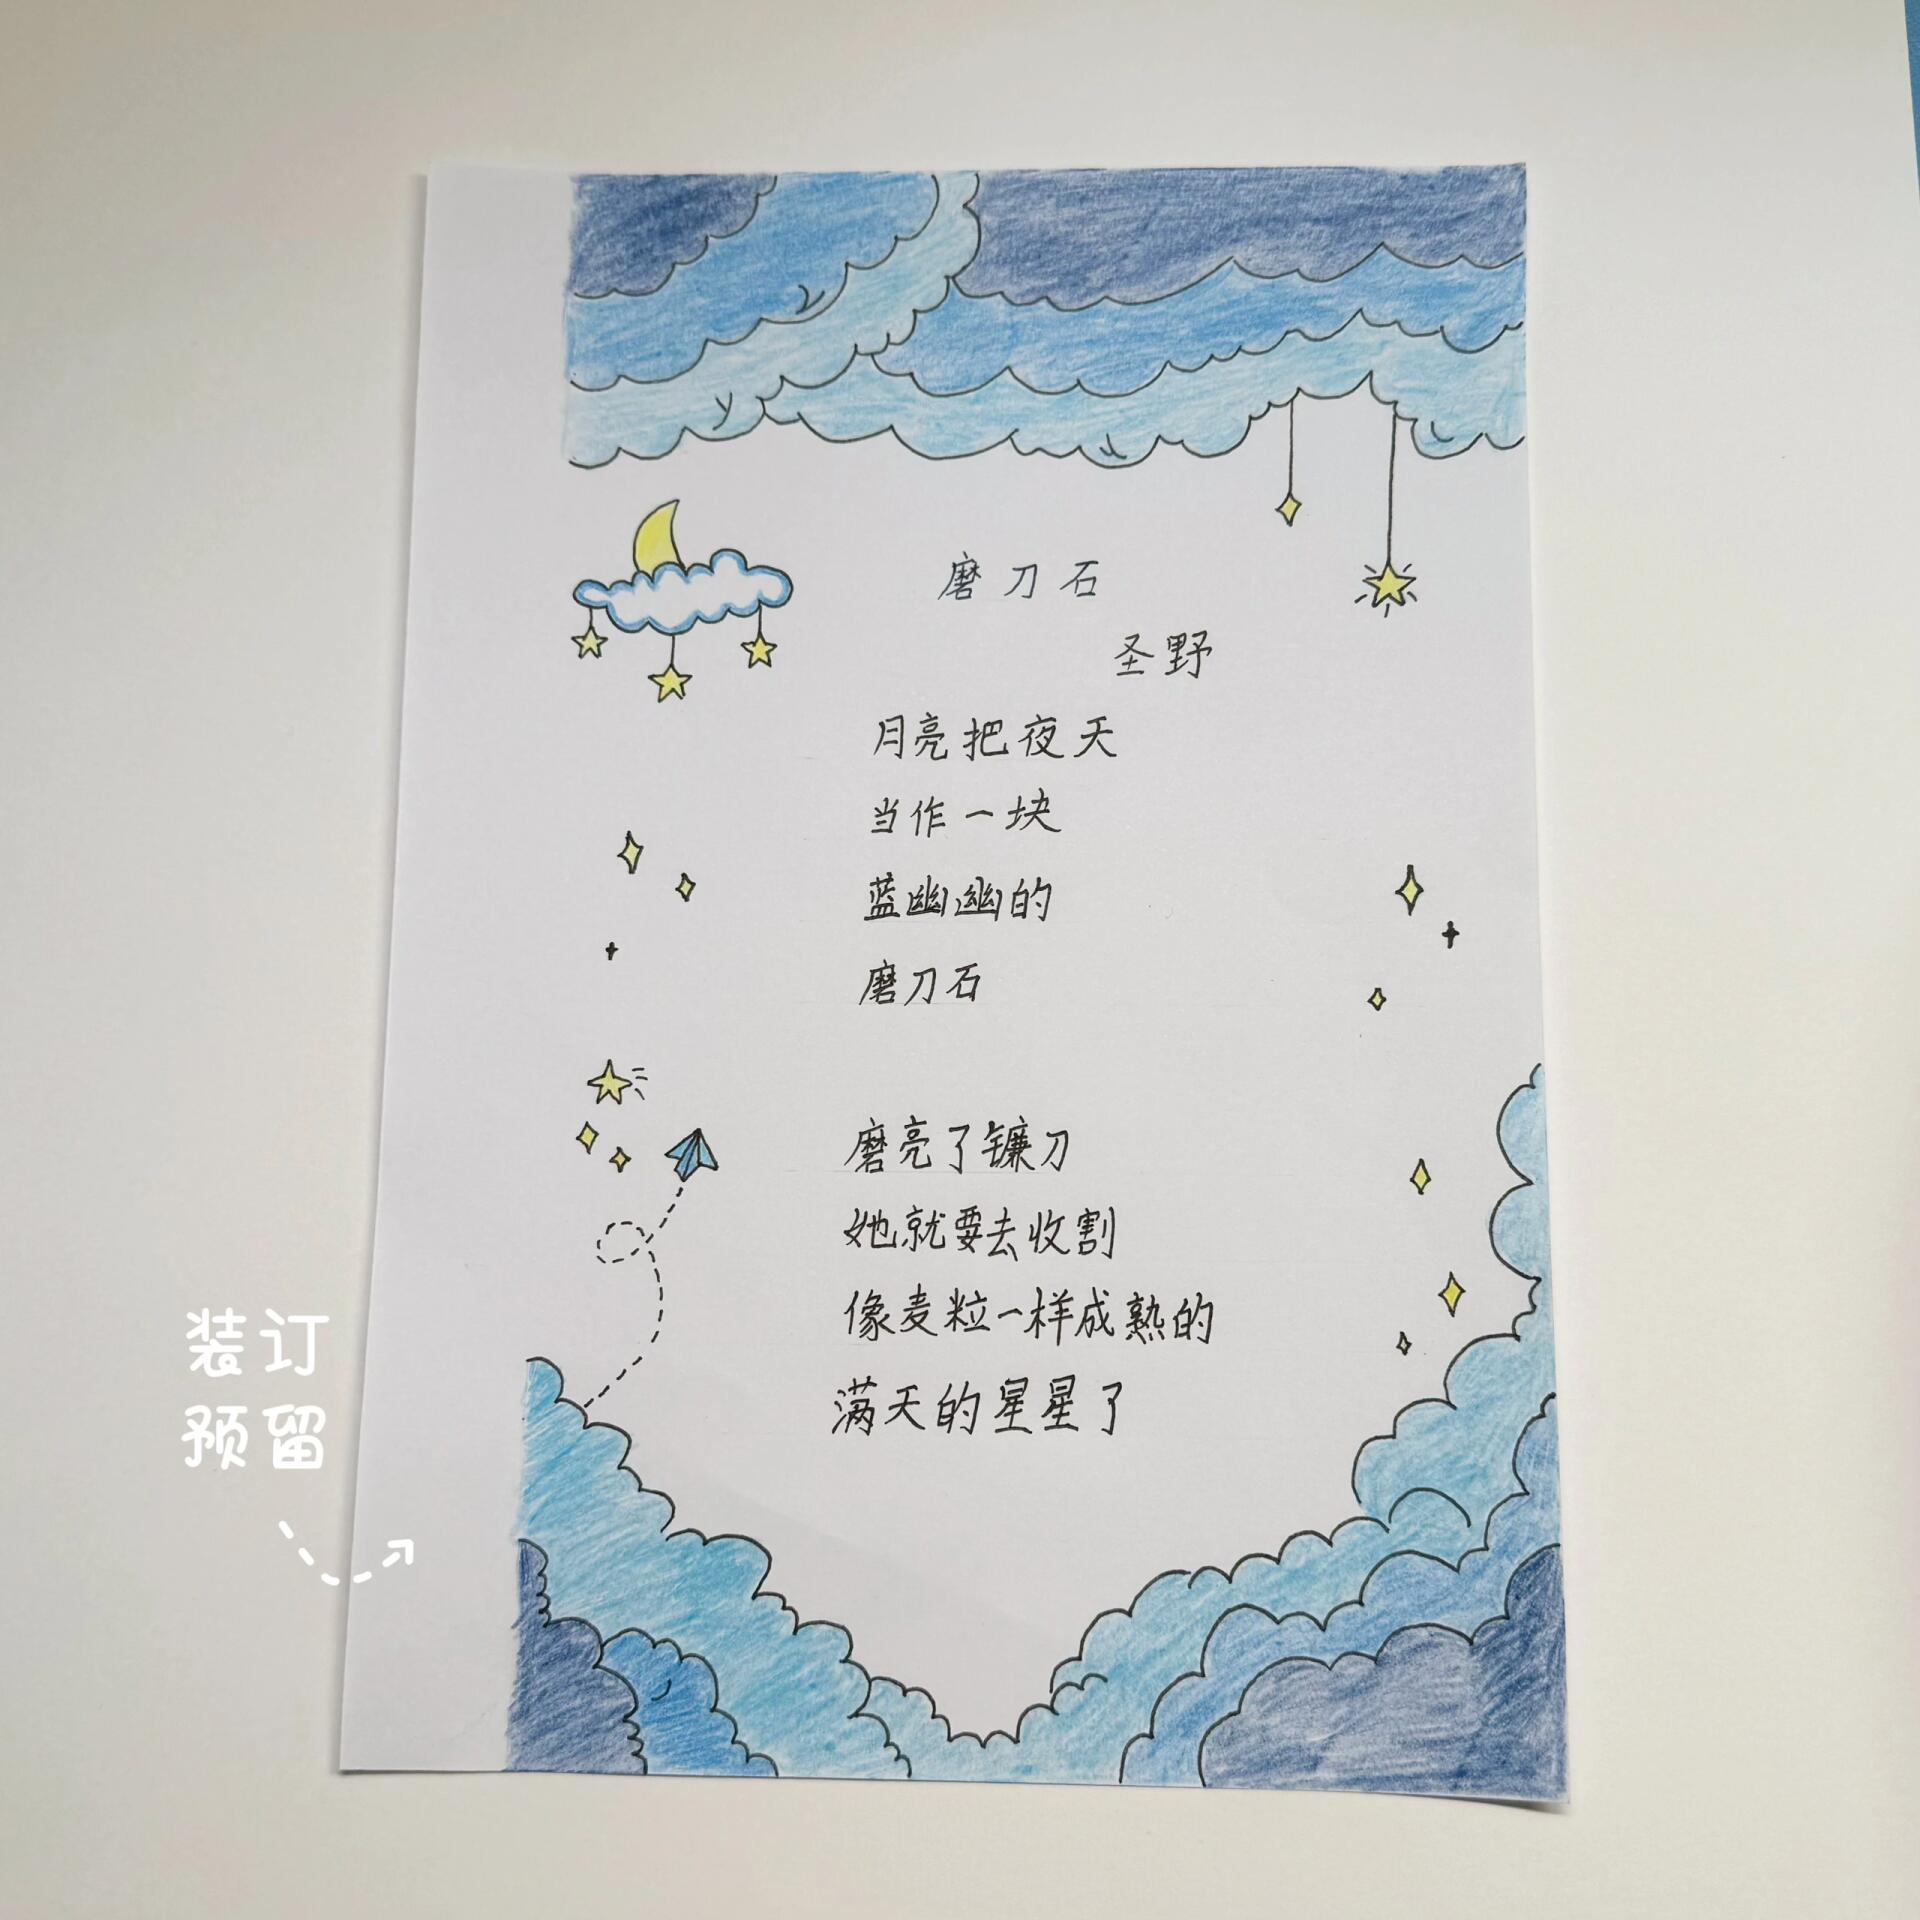 磨刀石
圣野
月亮把夜天
当作一块
蓝幽幽的
磨刀石
磨亮了镰刀
她就要去收割
像麦粒一样成熟的
满天的星星了
装订
预留